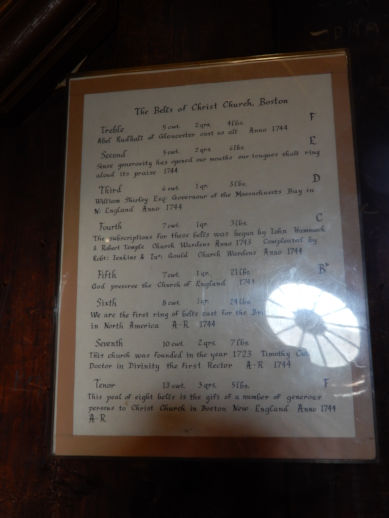 The Bells of Christ Church, Boston
Treble 5 cwt. 2 qrs. 4 lbs. F
Abel Rudhall of Gloucester cast us all Anno 1744
Second 5 cwt. 2 qrs. 6 lbs. E
Since generosity has opened our mouths our tongues shall ring
aloud its praise 1744
Third 6 cwt. 1 qr. 5 lbs. D
William Shirley Esq. Governour of the Massachusets Bay in
N. England Anno 1744
Fourth 7 cwt. 1 qr. 3 lbs. C
The subscriptions for these bells was begun by John Hammock
& Robert Temple Church Wardens Anno 1743 Compleated by
Robt: Jenkins & Gould Church Wardens Anno 1744
Fifth 7 cwt. 1 qr. 21 lbs. B♭
God preserve the Church of England 1744
Sixth 8 cwt. 3 qr. 24 lbs.
We are the first ring of bells cast for the
in North America A·R 1744
Seventh 10 cwt. 2 qrs. 7 lbs.
This church was founded in the year 1723 Timothy
Doctor in Divinity the first Rector A·R 1744
Tenor 13 cwt. 3 qrs. 5 lbs. F
This peal of eight bells is the gift of a number of generous
persons to Christ Church in Boston New England Anno 1744
A·R